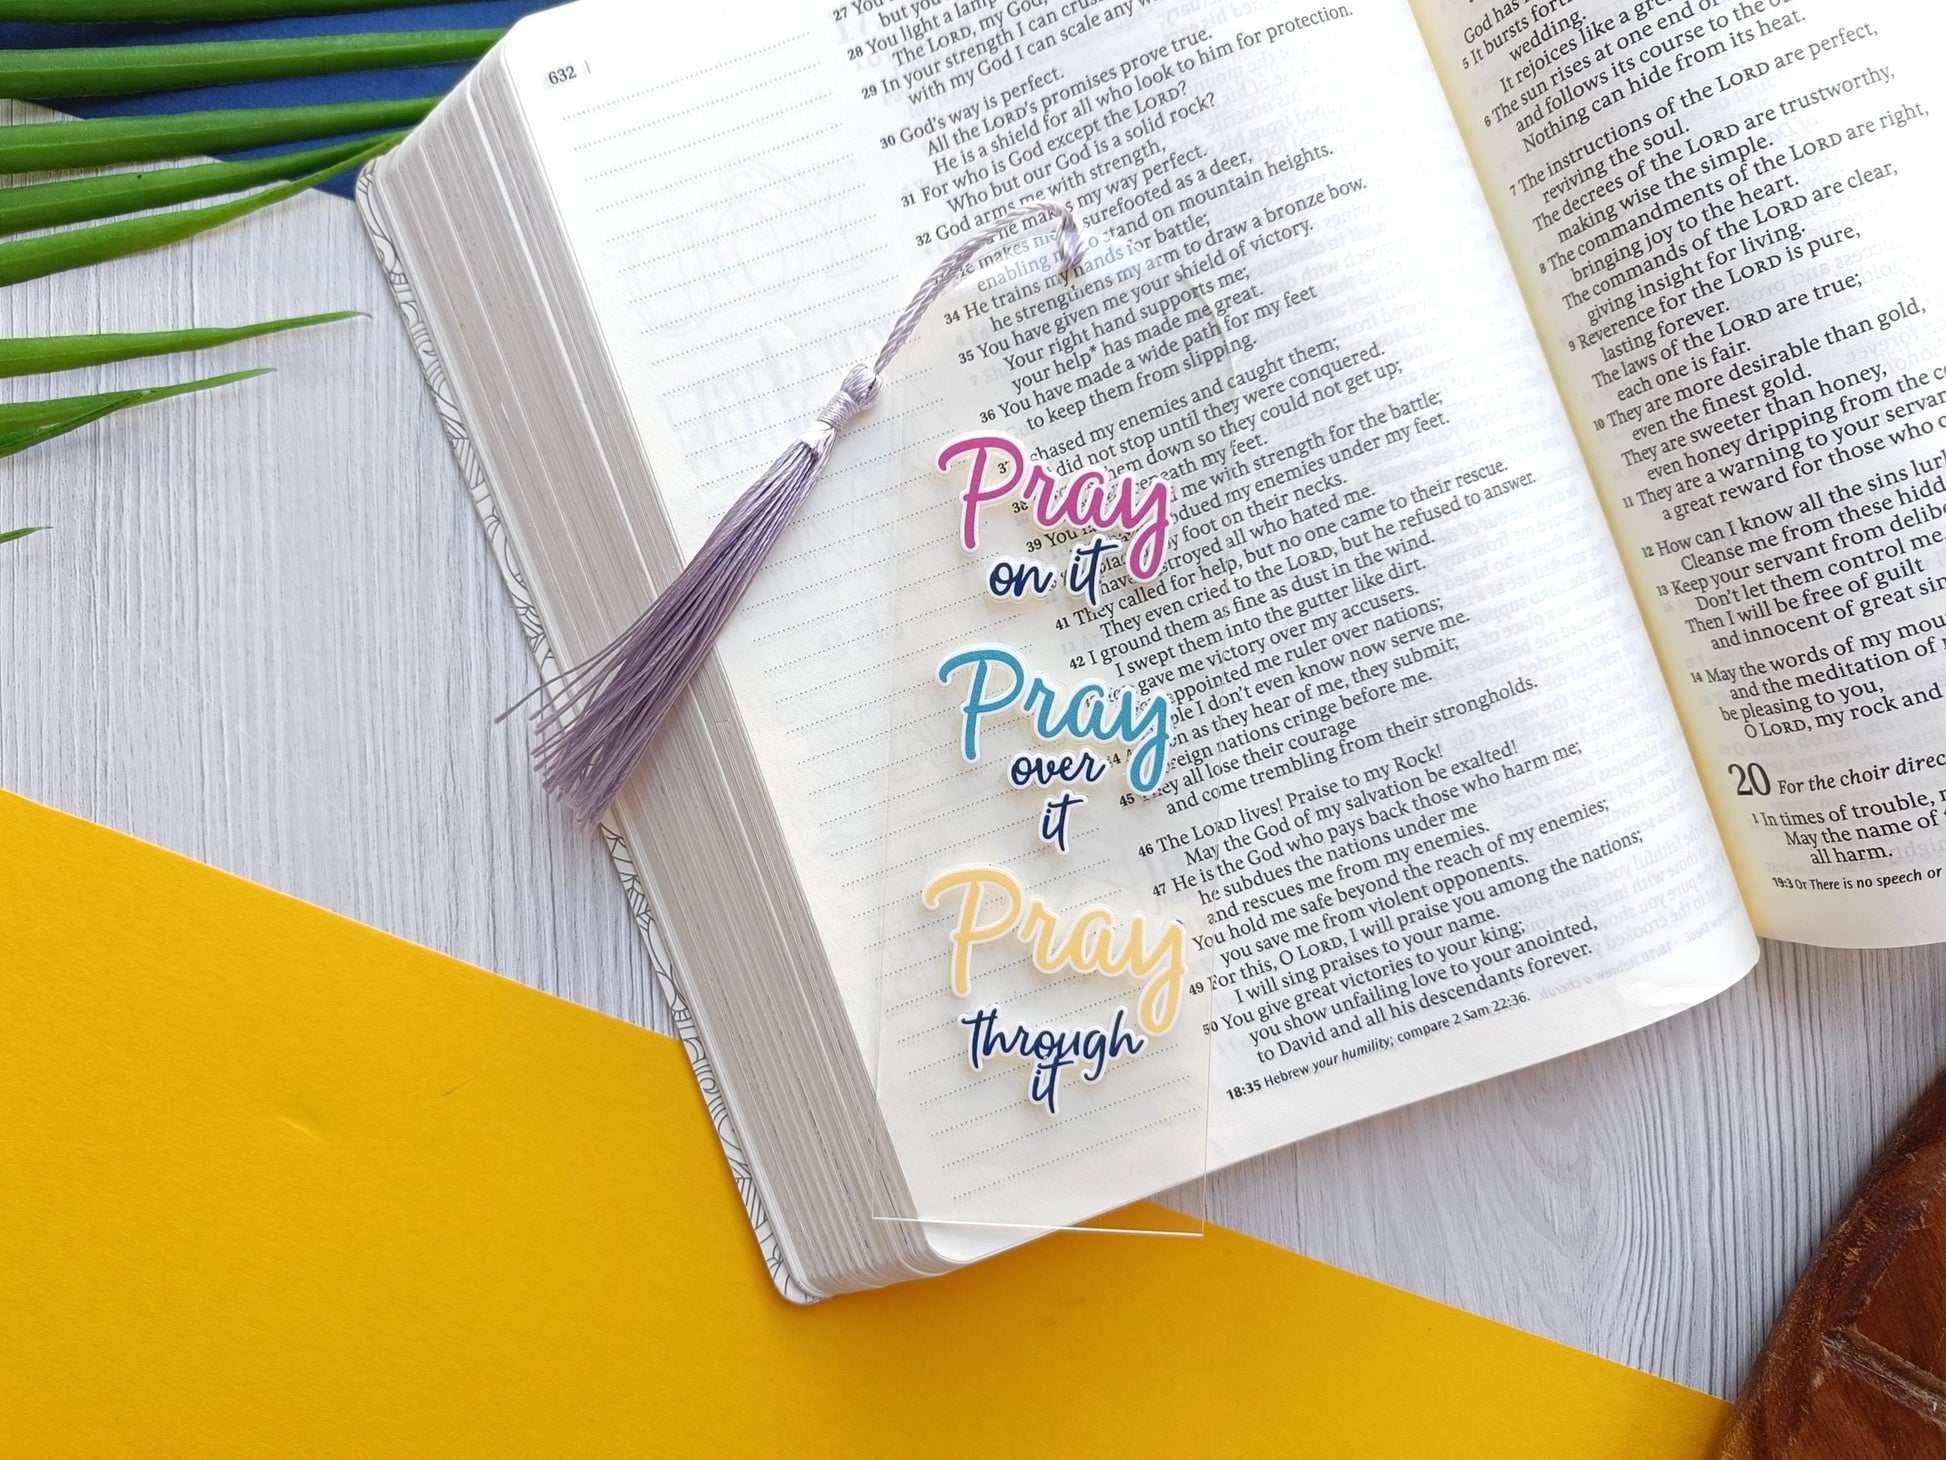 632
27 You
but you
28 You light a lamp
The LORD, my God,
29 In your strength I can crus
with my God I can scale any w
30 God's way is perfect.
All the LORD's promises prove true.
He is a shield for all who look to him for protection.
31 For who is God except the LORD?
Who but our God is a solid rock?
32 God arms me with strength,
he makes my way perfect.
He makes me surefooted as a deer,
enabling stand on mountain heights.
34 He trains my hands for battle;
he strengthens my arm to draw a bronze bow.
35 You have given me your shield of victory.
Your right hand supports me;
your help* has made me great.
36 You have made a wide path for my feet
to keep them from slipping.
37 chased my enemies and caught them;
did not stop until they were conquered.
38 them down so they could not get up;
neath my feet.
39 You me with strength for the battle;
dued my enemies under my feet.
foot on their necks.
have stroyed all who hated me.
41 They called for help, but no one came to their rescue.
They even cried to the LORD, but he refused to answer.
42 I ground them as fine as dust in the wind.
I swept them into the gutter like dirt.
gave me victory over my accusers.
appointed me ruler over nations;
ple I don't even know now serve me.
44 as they hear of me, they submit;
reign nations cringe before me.
45 They all lose their courage
and come trembling from their strongholds.
46 The LORD lives! Praise to my Rock!
May the God of my salvation be exalted!
47 He is the God who pays back those who harm me;
he subdues the nations under me
and rescues me from my enemies.
You hold me safe beyond the reach of my enemies;
you save me from violent opponents.
49 For this, O LORD, I will praise you among the nations;
I will sing praises to your name.
50 You give great victories to your king;
you show unfailing love to your anointed,
to David and all his descendants forever.
18:35 Hebrew your humility; compare 2 Sam 22:36.
Pray
on it
Pray
over
it
Pray
through
it
God has
5 It bursts forth
wedding.
It rejoices like a grea
6 The sun rises at one end of
and follows its course to the o
Nothing can hide from its heat.
7 The instructions of the LORD are perfect,
reviving the soul.
The decrees of the LORD are trustworthy,
making wise the simple.
8 The commandments of the LORD are right,
bringing joy to the heart.
The commands of the LORD are clear,
giving insight for living.
9 Reverence for the LORD is pure,
lasting forever.
The laws of the LORD are true;
each one is fair.
10 They are more desirable than gold,
even the finest gold.
They are sweeter than honey,
even honey dripping from the co
11 They are a warning to your servan
a great reward for those who o
12 How can I know all the sins lurk
Cleanse me from these hidd
13 Keep your servant from delibe
Don't let them control me.
Then I will be free of guilt
and innocent of great sin
14 May the words of my mou
and the meditation of
be pleasing to you,
O LORD, my rock and
20 For the choir direc
1 In times of trouble,
May the name of
all harm.
19:3 Or There is no speech or